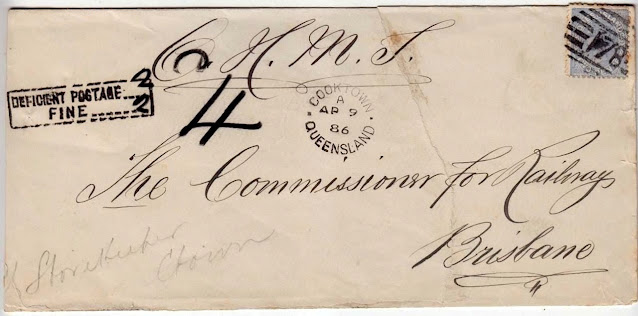 O. H. M. S.
DEFICIENT POSTAGE 2
FINE 2
4
COOKTOWN
A
AP 9
86
QUEENSLAND
The Commissioner for Railways
Brisbane
Storekeeper
Ctown